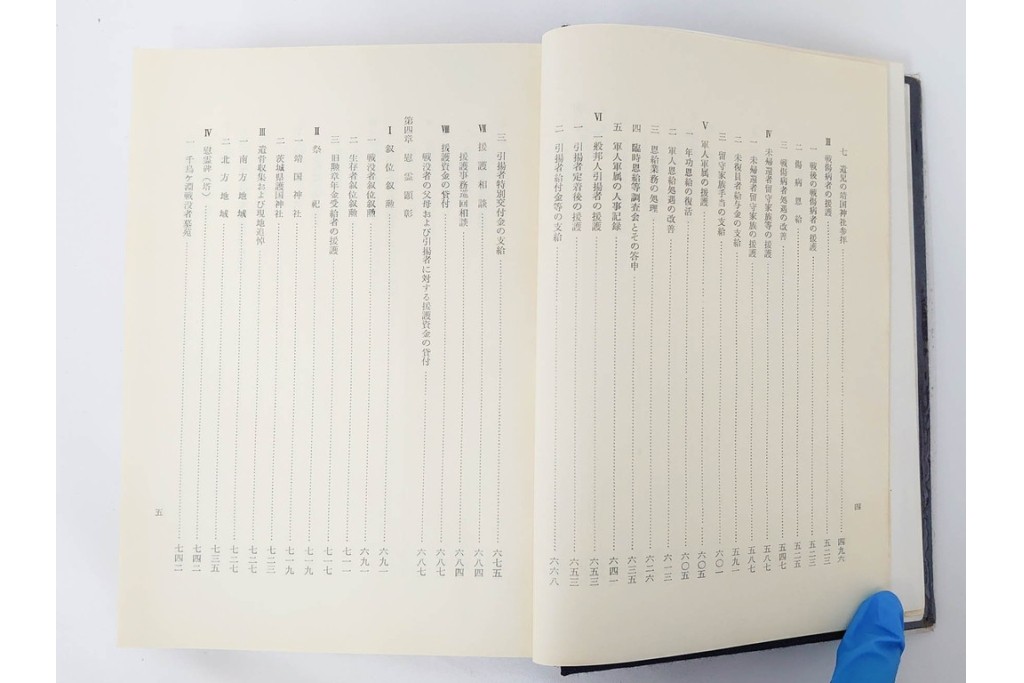 七 遺児の靖国神社参拝……四九六
Ⅲ 戦傷病者の援護……五二三
一 戦後の戦傷病者の援護……五二三
二 傷病恩給……五二五
三 戦傷病者処遇の改善……五四七
Ⅳ 未帰還者留守家族等の援護……五八七
一 未帰還者留守家族の援護……五八七
二 未復員者給与金の支給……五九一
三 留守家族手当の支給……六〇一
Ⅴ 軍人軍属の援護……六〇五
一 年功恩給の復活……六〇五
二 軍人恩給処遇の改善……六一三
三 恩給業務の処理……六二六
四 臨時恩給等調査会とその答申……六三五
五 軍人軍属の人事記録……六四一
Ⅵ 一般邦人引揚者の援護……六五三
一 引揚者定着後の援護……六五三
二 引揚者給付金等の支給……六六八
四
三 引揚者特別交付金の支給……六七五
Ⅶ 援護相談……六八四
援護事務巡回相談……六八四
Ⅷ 援護資金の貸付……六八七
戦没者の父母および引揚者に対する援護資金の貸付……六八七
第四章 慰霊顕彰
Ⅰ 叙位叙勲……六九一
一 戦没者叙位叙勲……六九一
二 生存者叙位叙勲……七一一
三 旧勲章年金受給者の援護……七一七
Ⅱ 祭祀……七一九
一 靖国神社……七一九
二 茨城県護国神社……七二三
Ⅲ 遺骨収集および現地追悼……七二七
一 南方地域……七二七
二 北方地域……七三五
Ⅳ 慰霊碑（塔）……七四二
一 千鳥ケ淵戦没者墓苑……七四二
五